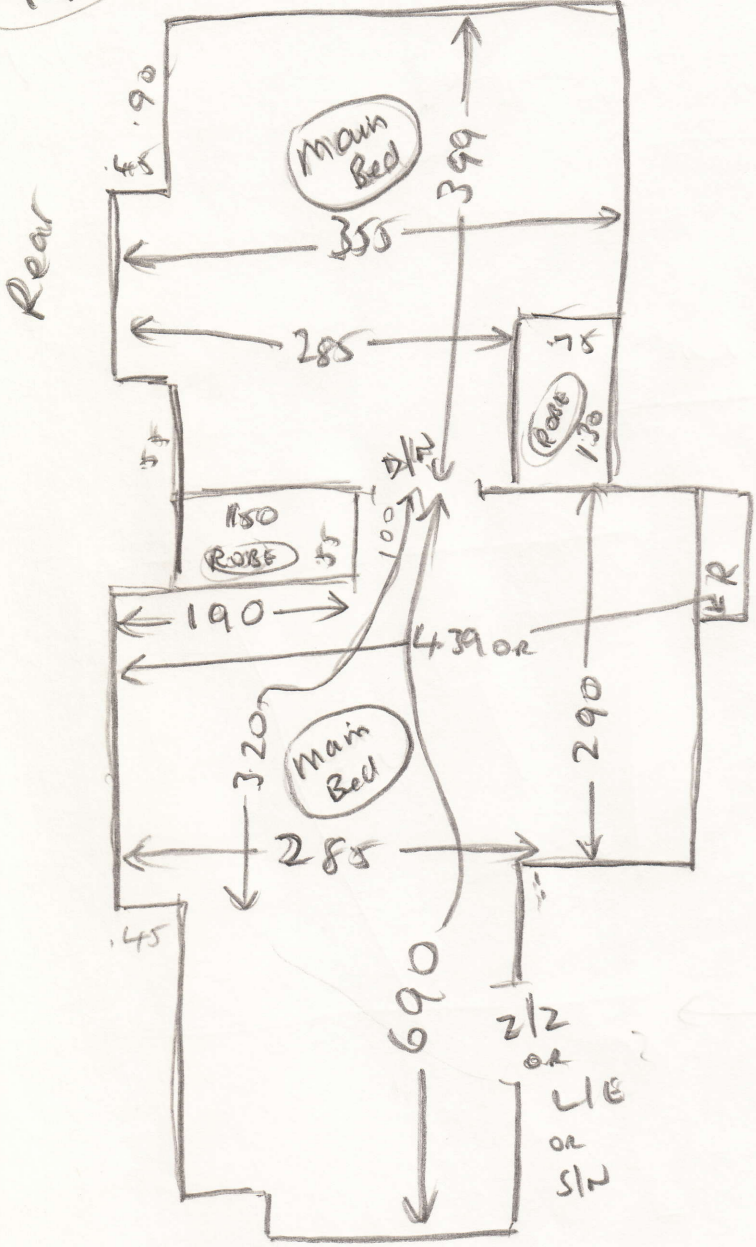 .90
.45
Rear
Main
Bed
399
355
285
.75
ROBE
1.30
.55
Z/Z
1.50
ROBE
.55
100
190
439 OR
R
320
290
Main
Bed
285
.45
690
Z/Z
OR
L/E
OR
S/N